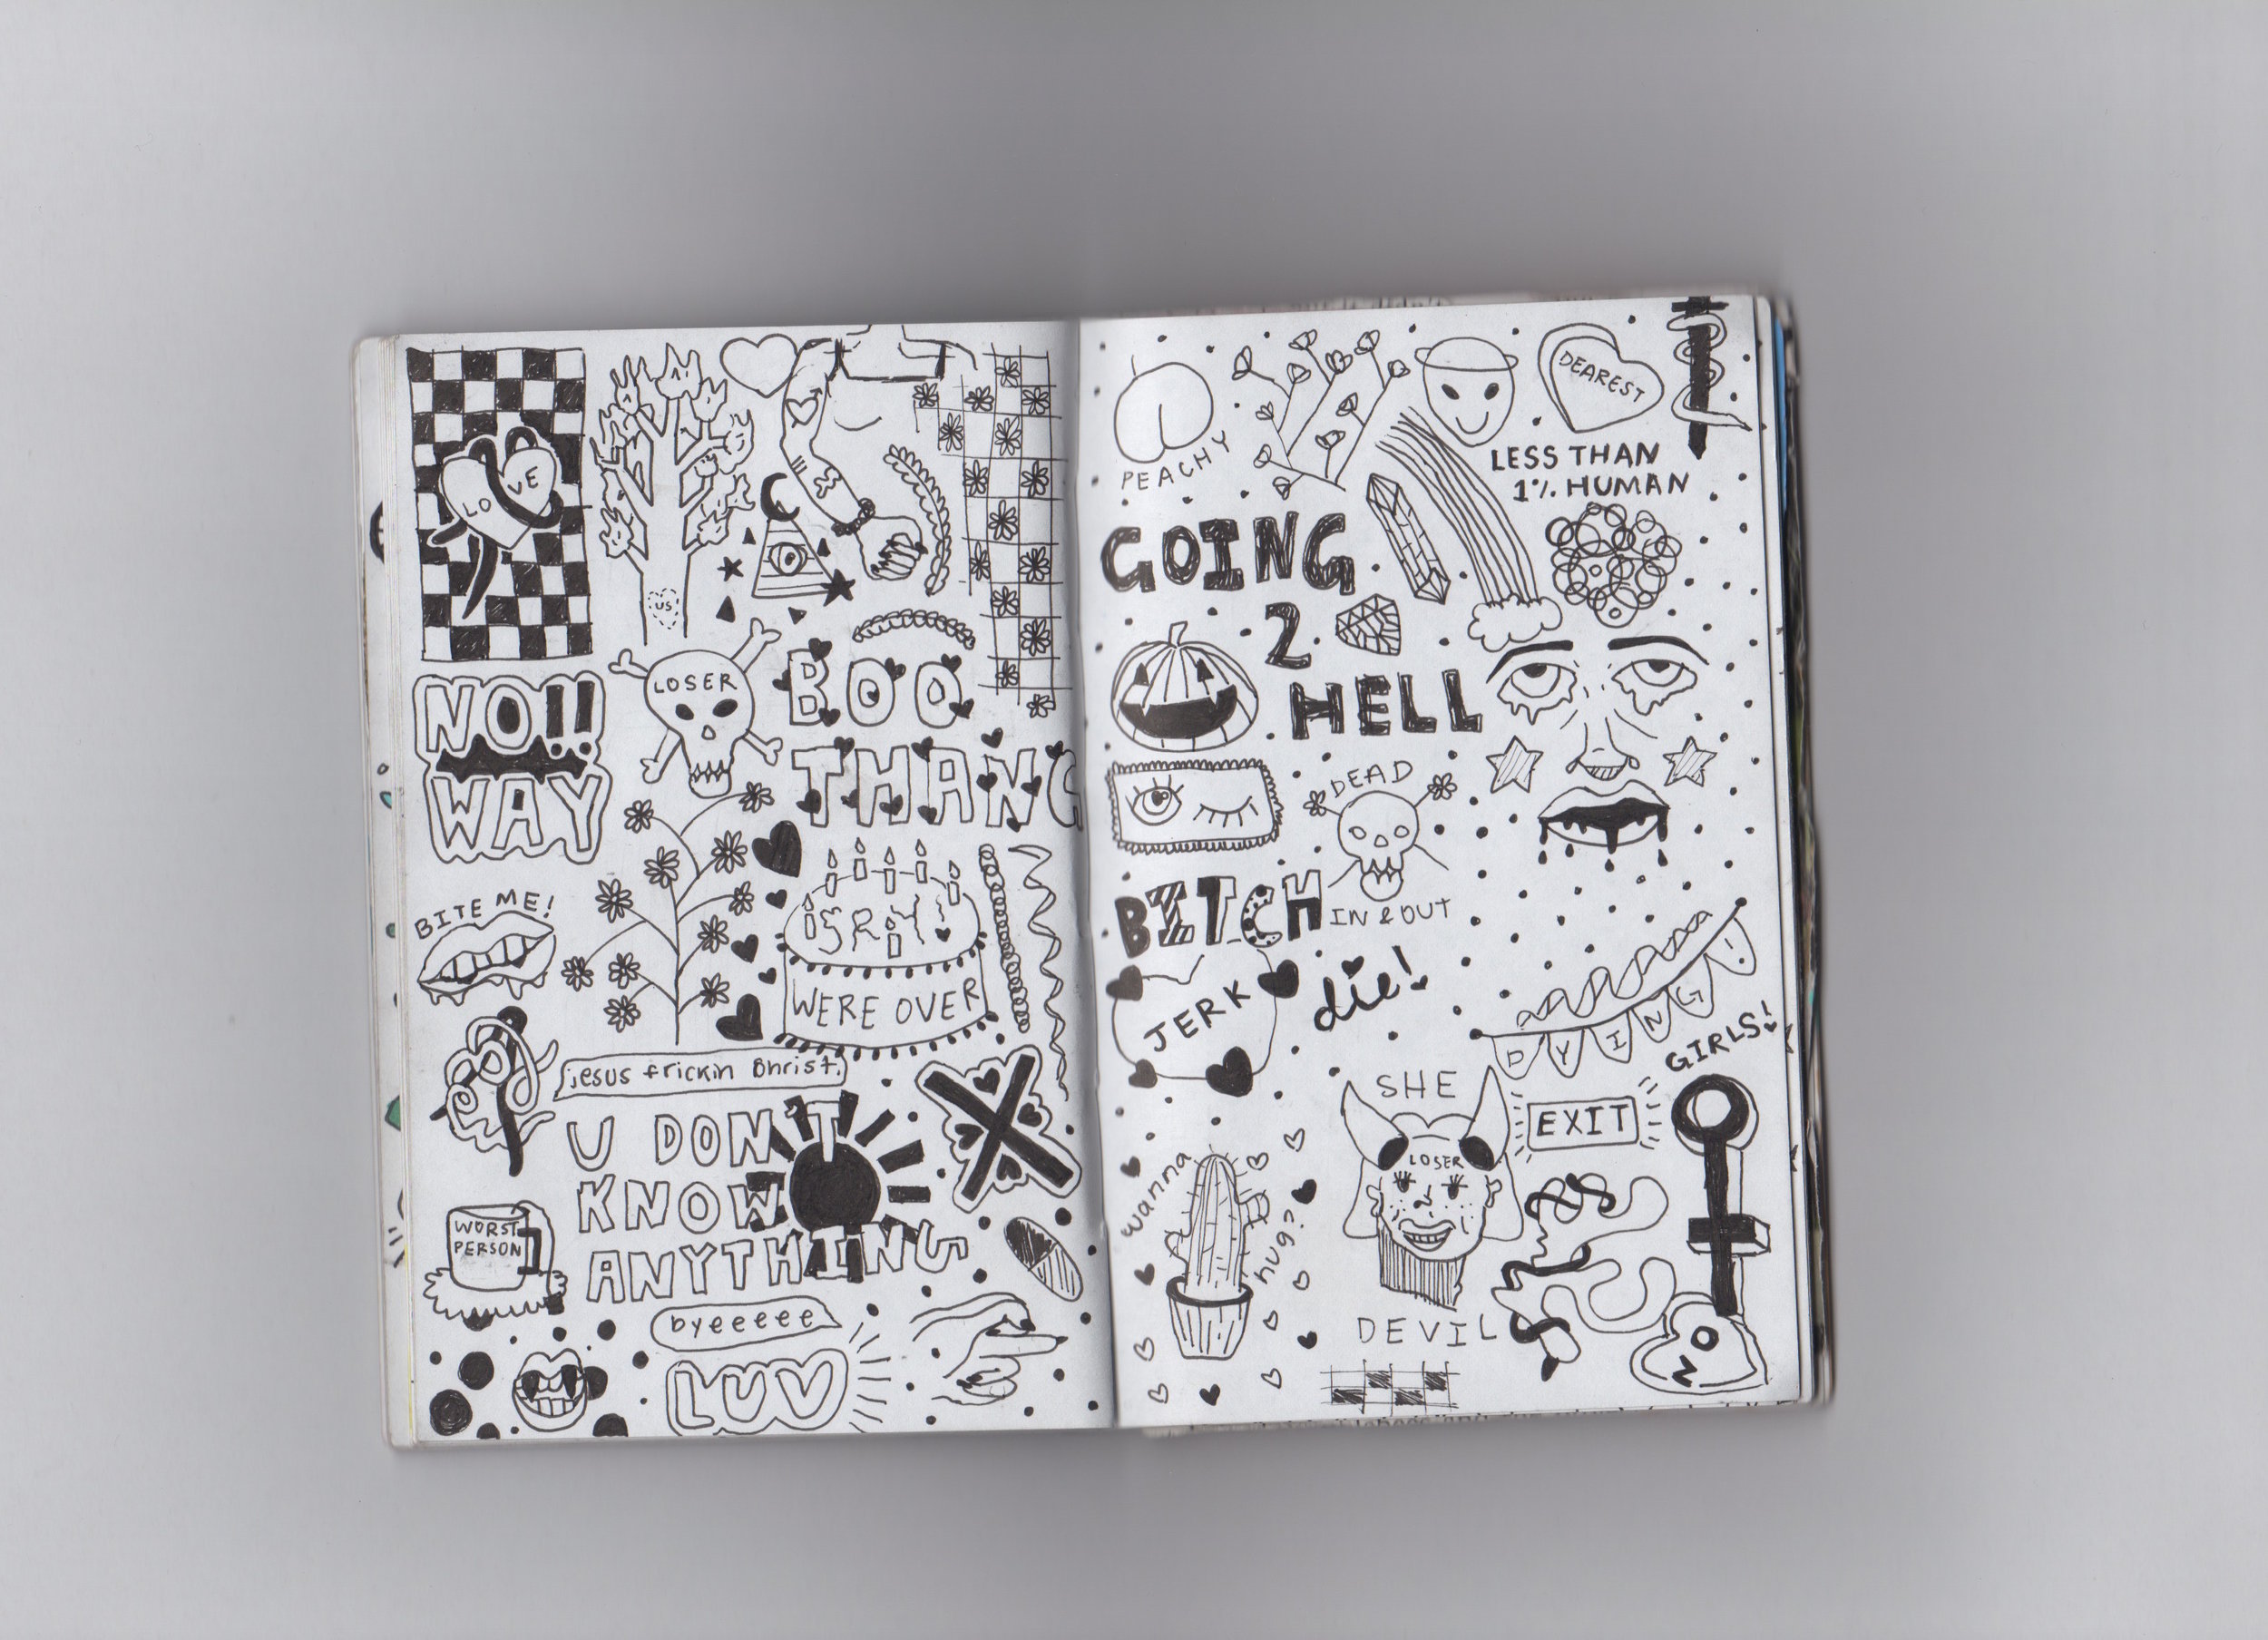 LOVE
US
NO!!
WAY
LOSER
BOO
THANG
BITE ME!
SRY!
WERE OVER
jesus frickin Bhrist.
U DON'T
KNOW
ANYTHING
WORST
PERSON
byeeeee
LUV
PEACHY
DEAREST
LESS THAN
1% HUMAN
GOING
2
HELL
DEAD
IN & OUT
BITCH
JERK
die!
DYING!
GIRLS!
SHE
LOSER
DEVIL
EXIT
wanna
hug?
NO